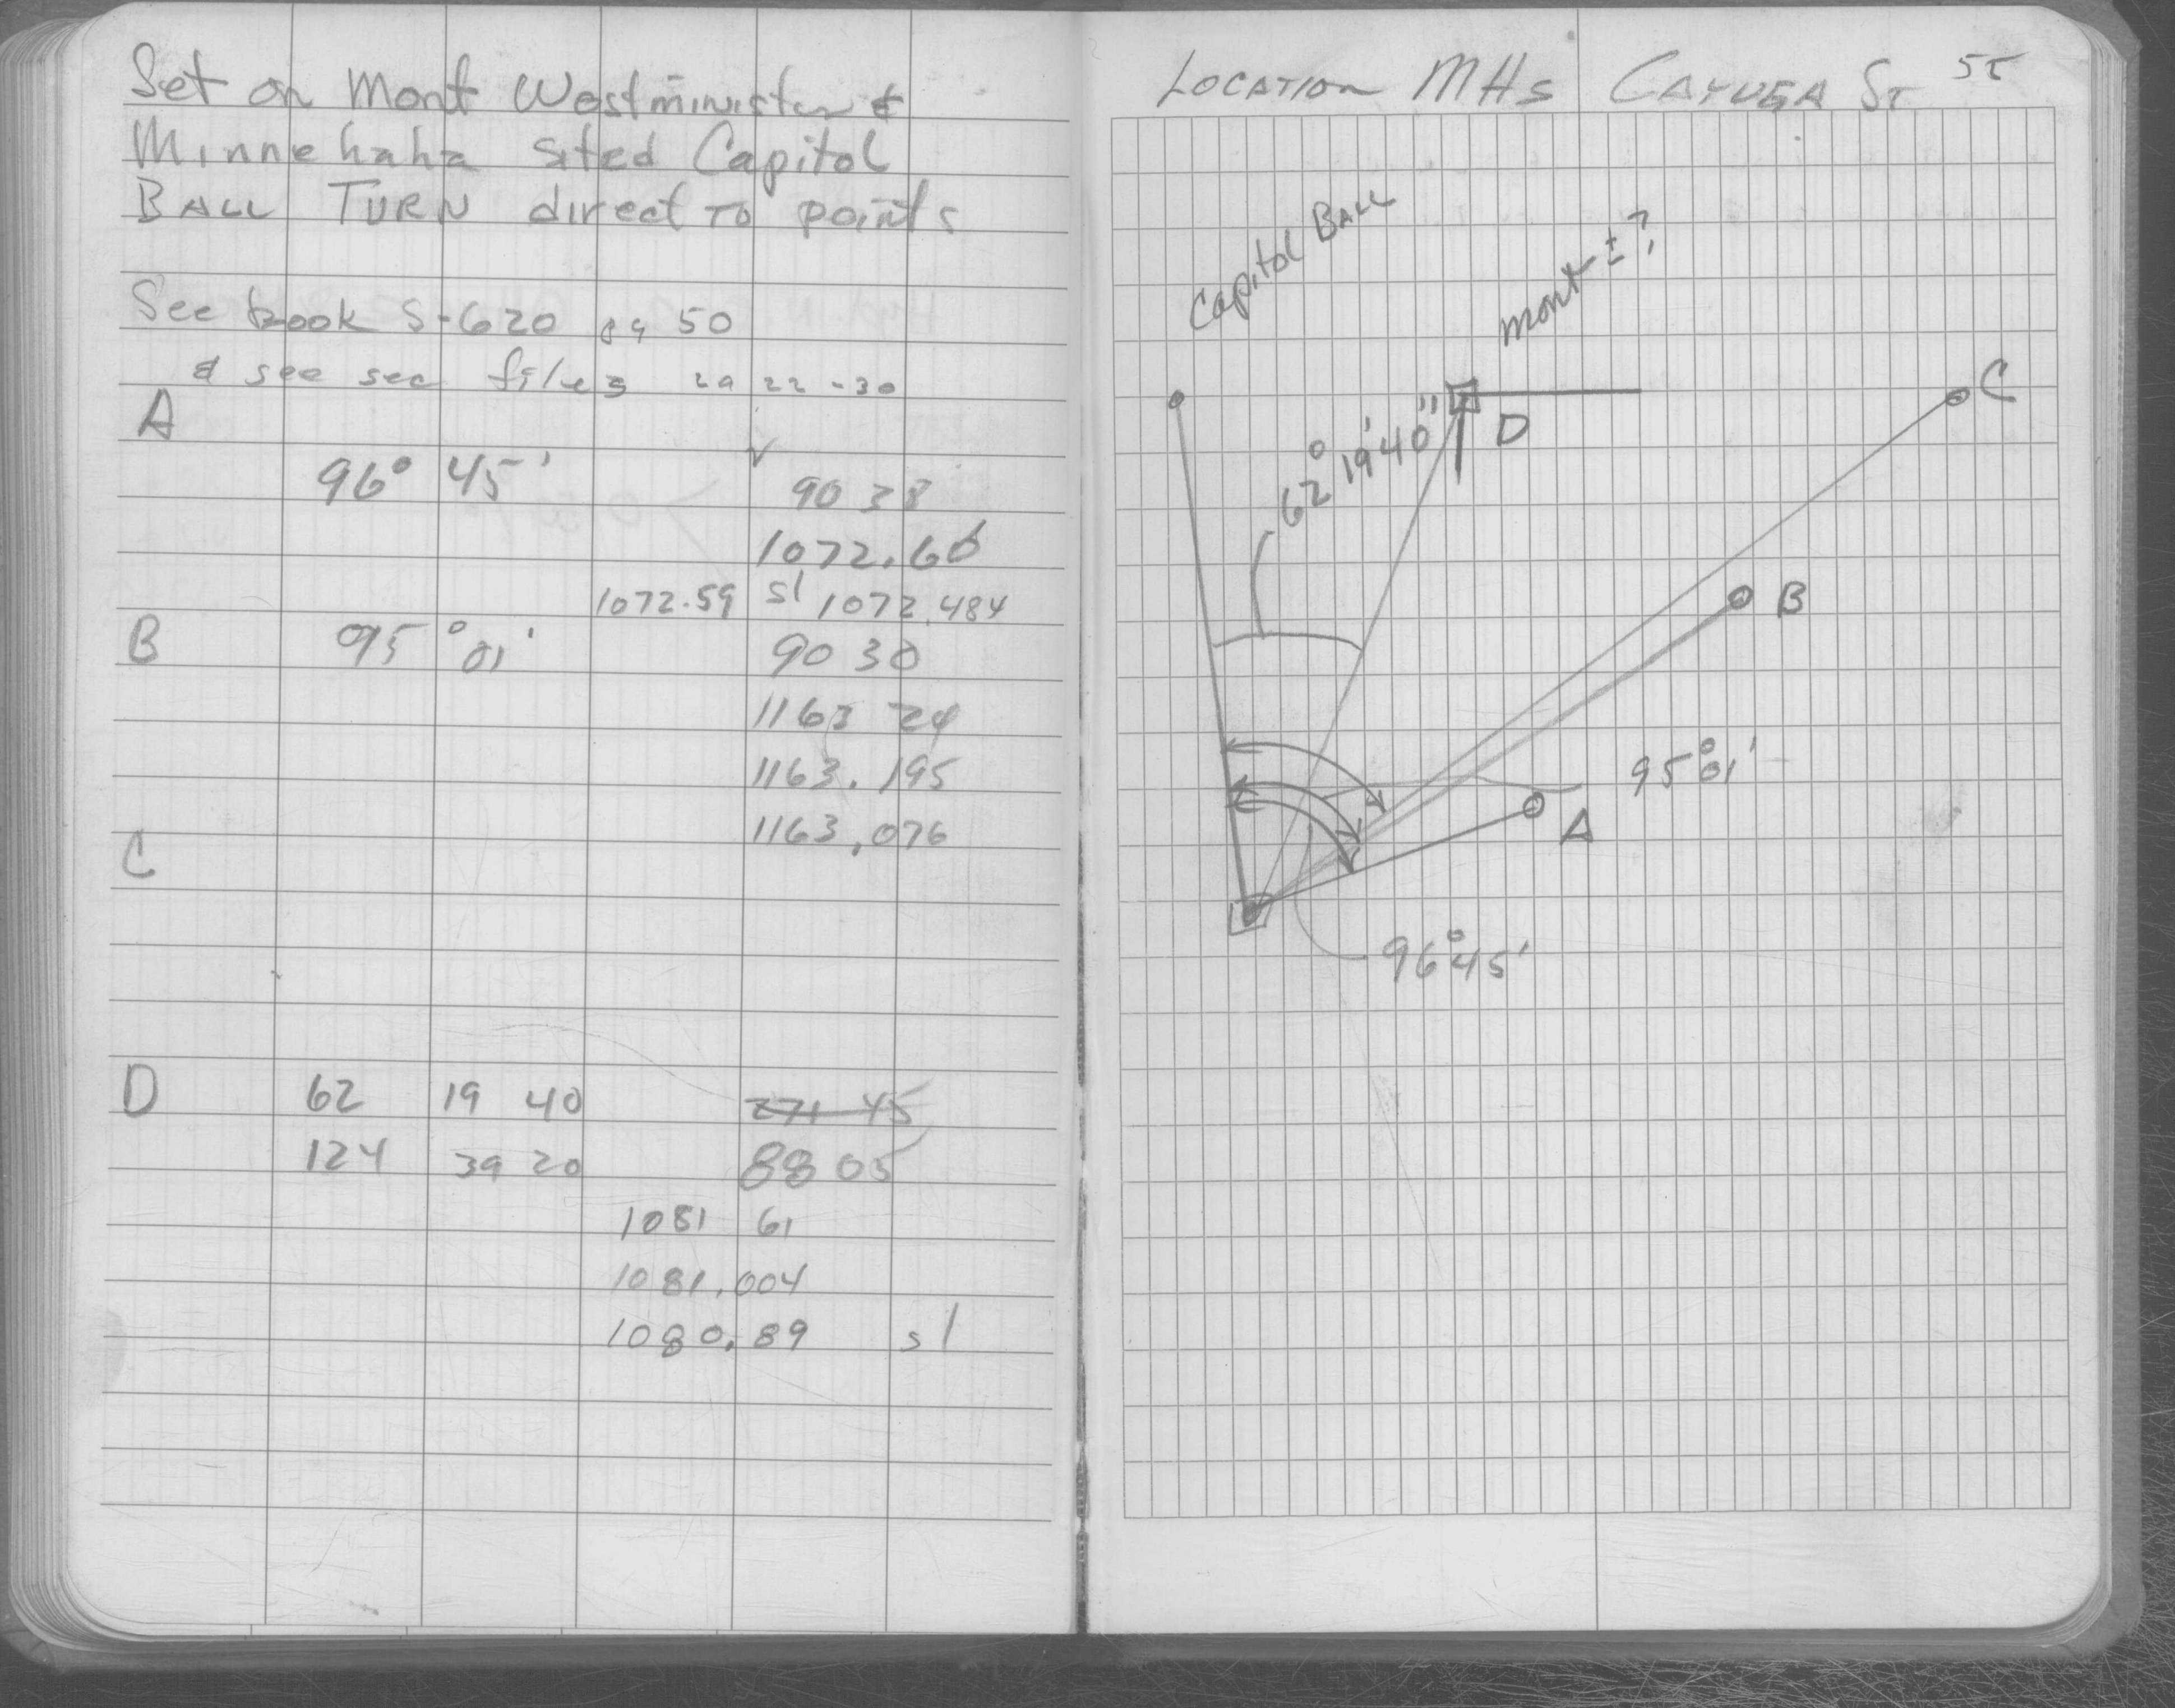 Set on Mont Westminister &
Minnehaha sited Capitol
BALL TURN direct TO points
See book S-620 pg 50
& see sec files 29 22 -30
A
96° 45' 90 38
1072.60
1072.59 sl 1072.484
B 95° 01' 90 30
1163 24
1163.195
1163.076
C
D 62 19 40 271 45
124 39 20 88 05
1081 61
1081.004
1080.89 sl
LOCATION MHs CAYUGA ST 55
Capitol BALL
mont ± ?
62° 19' 40"
D
C
B
95° 01'
A
96° 45'